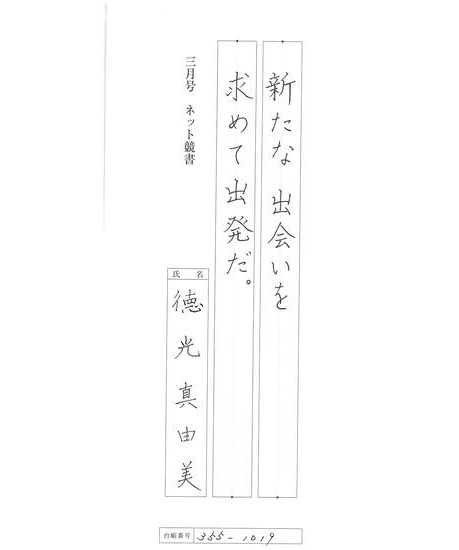 新たな出会いを
求めて出発だ。
三月号 ネット競書
氏名
徳光真由美
台帳番号 355-1019